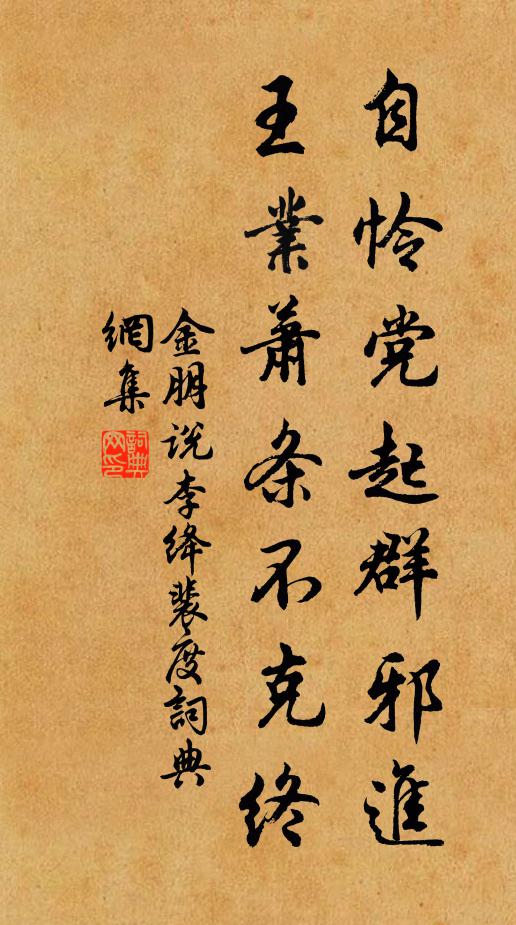 自怜党起群邪進
王業蕭条不克終
金朋说李绛裴度詞典
網集
詞典
网印